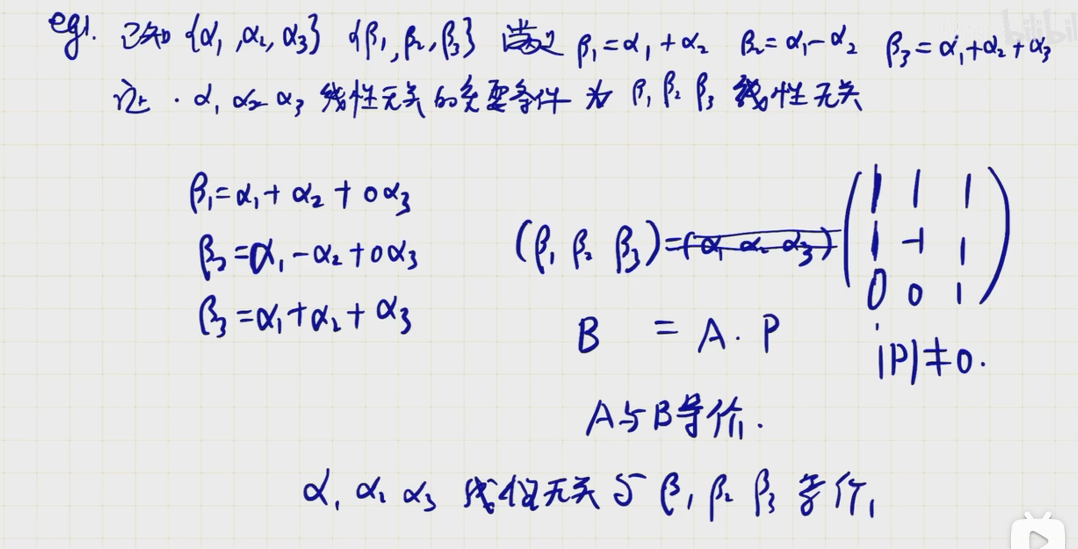 eg1. 已知 {α₁,α₂,α₃} {β₁,β₂,β₃} 满足 β₁=α₁+α₂ β₂=α₁-α₂ β₃=α₁+α₂+α₃
bilibili
证. α₁ α₂ α₃ 线性无关的充要条件为 β₁ β₂ β₃ 线性无关
β₁=α₁+α₂+0α₃
β₂=α₁-α₂+0α₃
β₃=α₁+α₂+α₃
(β₁ β₂ β₃)=(α₁ α₂ α₃)
1 1 1
1 -1 1
0 0 1
B = A·P
|P|≠0.
A与B等价.
α₁ α₂ α₃ 线性无关与 β₁ β₂ β₃ 等价